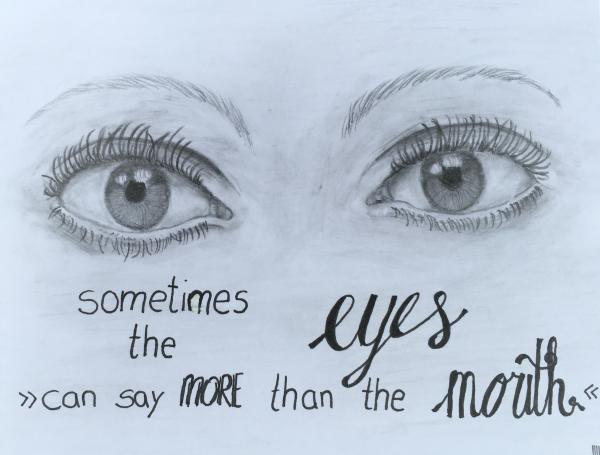 sometimes
the eyes
»can say MORE than the mouth.«